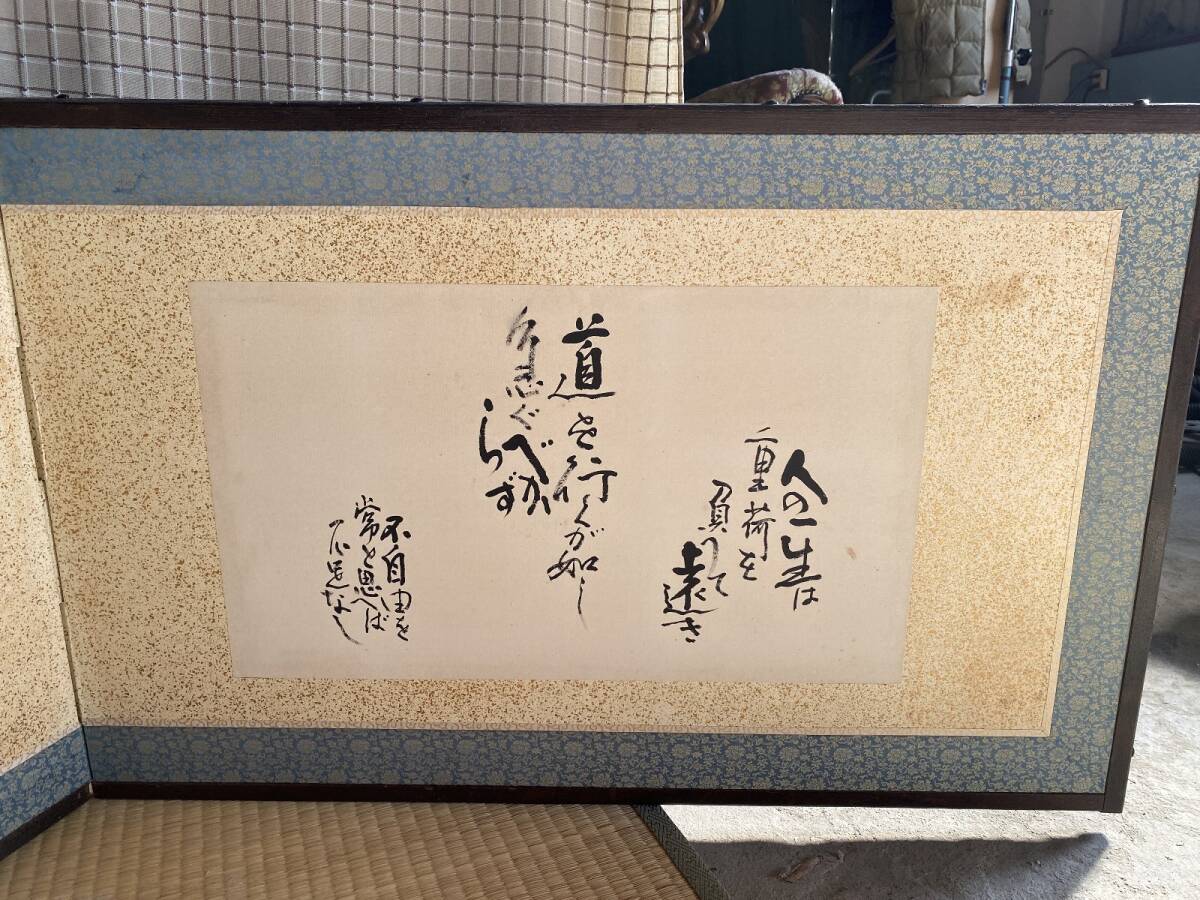 人の一生は
重荷を
負いて
遠き
道を行くが如し
急ぐ
べか
らず
不自由を
常と思へば
不足なし